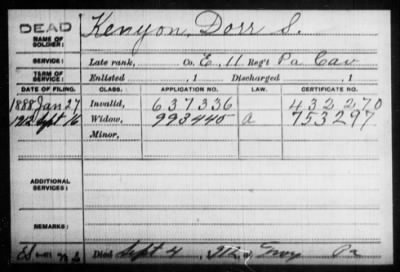 DEAD
NAME OF SOLDIER: Kenyon, Dorr S.
SERVICE: Late rank, Co. E, 11 Reg't Pa Cav
TERM OF SERVICE: Enlisted , 1 Discharged , 1
DATE OF FILING. CLASS. APPLICATION NO. LAW. CERTIFICATE NO.
1888 Jan 27 Invalid, 637336 432270
1912 Sept 16 Widow, 993440 a 753297
Minor,
ADDITIONAL SERVICES:
REMARKS:
Died Sept 4, 1912, at Troy Pa